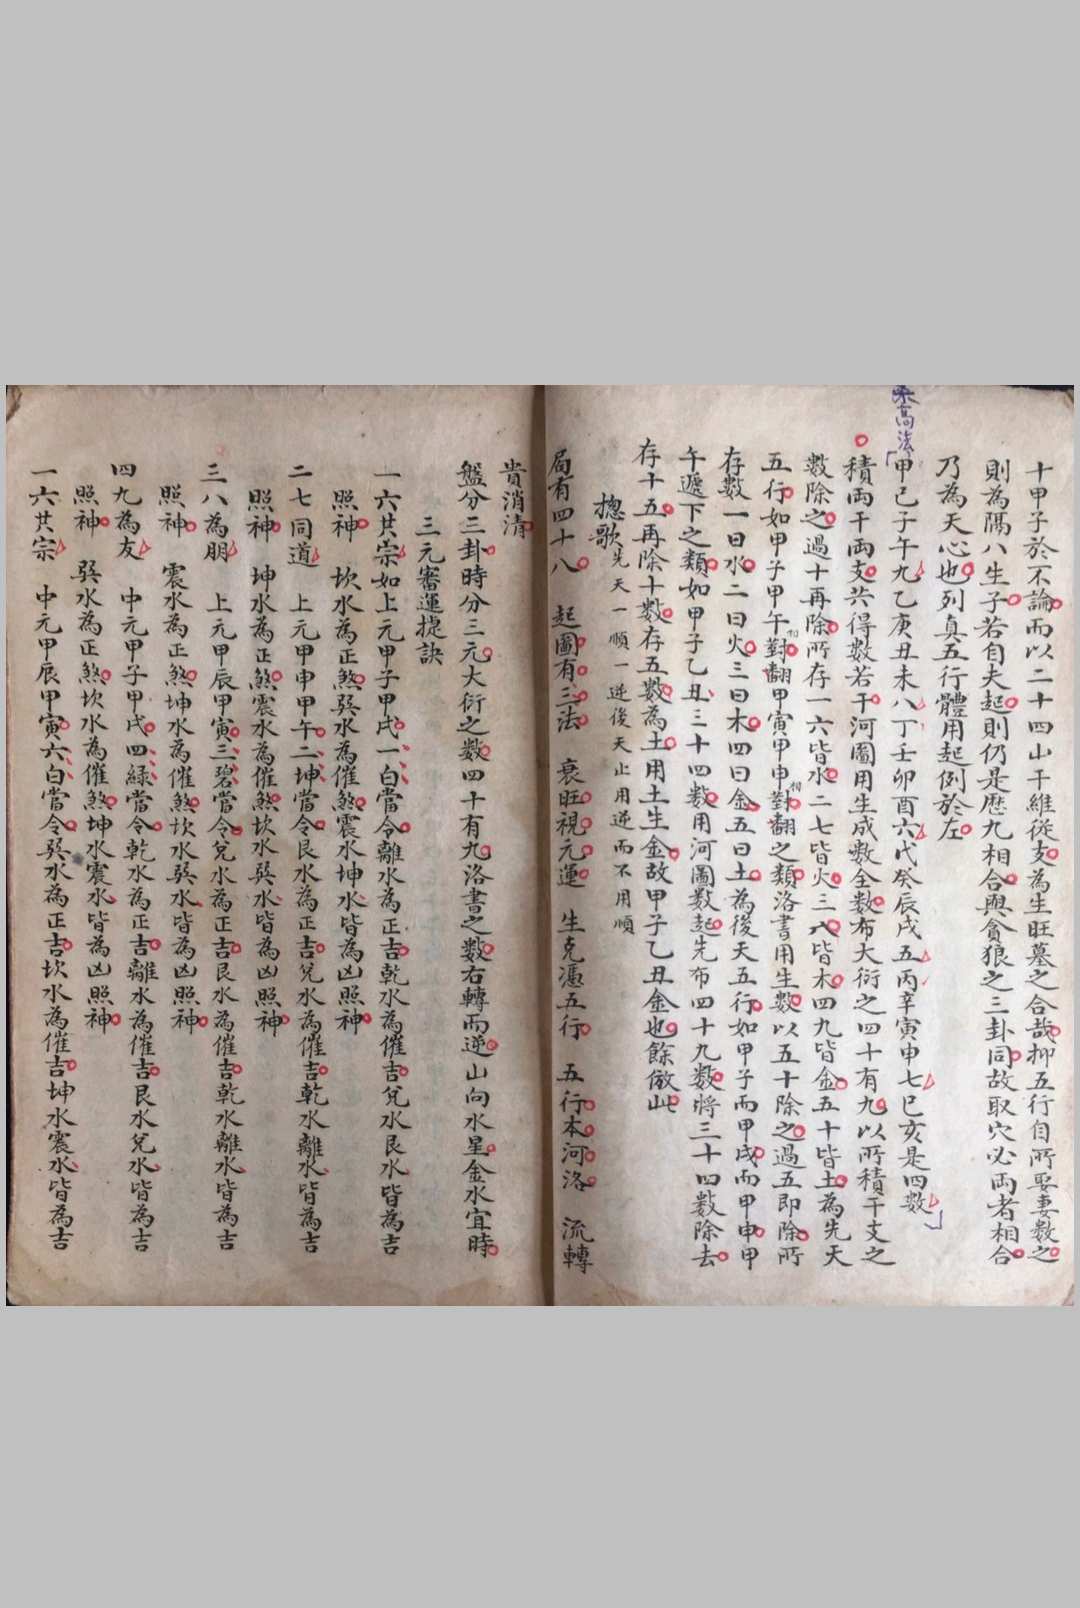 十甲子於不論而以二十四山干維從支為生旺墓之合哉抑五行自所娶妻數之
則為隔八生子若自夫起則仍是歷九相合與貪狼之三卦同故取穴必両者相合
乃為天心也列真五行體用起例於左
高法
甲己子午九乙庚丑未八丁壬卯酉六戊癸辰戌五丙辛寅申七巳亥是四數
積両干両支共得數若干河圖用生成數全數布大衍之四十有九以所積干支之
數除之過十再除所存一六皆水二七皆火三八皆木四九皆金五十皆土為先天
五行如甲子甲午對翻甲寅甲申對翻之類洛書用生數以五十除之過五即除所
相
相
存數一曰水二曰火三曰木四曰金五曰土為後天五行如甲子而甲戌而甲申甲
午遞下之類如甲子乙丑三十四數用河圖數起先布四十九數將三十四數除去
存十五再除十數存五數為土用土生金故甲子乙丑金也餘倣此
摠歌
先天一順一逆後天止用逆而不用順
局有四十八 起圖有三法 衰旺視元運 生克憑五行 五行本河洛 流轉
貴消清
盤分三卦時分三元大衍之數四十有九洛書之數右轉而逆山向水星金水宜時
三元審運捷訣
一六共宗如上元甲子甲戌一白當令離水為正吉乾水為催吉兌水艮水皆為吉
照神 坎水為正煞巽水為催煞震水坤水皆為凶照神
二七同道 上元甲申甲午二坤當令艮水為正吉兌水為催吉乾水離水皆為吉
照神 坤水為正煞震水為催煞坎水巽水皆為凶照神
三八為朋 上元甲辰甲寅三碧當令兌水為正吉艮水為催吉乾水離水皆為吉
照神 震水為正煞坤水為催煞坎水巽水皆為凶照神
四九為友 中元甲子甲戌四綠當令乾水為正吉離水為催吉艮水兌水皆為吉
照神 巽水為正煞坎水為催煞坤水震水皆為凶照神
一六共宗 中元甲辰甲寅六白當令巽水為正吉坎水為催吉坤水震水皆為吉